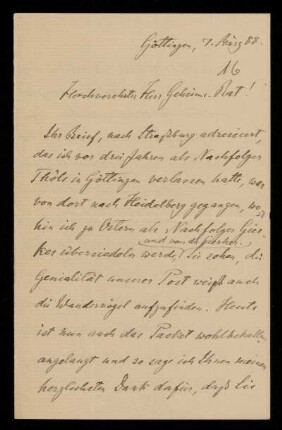 Göttingen, 7. März 88.
16
Hochverehrter Herr Geheim-Rat!
Ihr Brief, nach Straßburg adressiert,
das ich vor drei Jahren als Nachfolger
Thöls in Göttingen verlassen hatte, war
von dort nach Heidelberg gegangen, wo-
hin ich zu Ostern als Nachfolger Gier-
und von da hierher.
kes übersiedeln werde. Sie sehen, die
Genialität unserer Post weiß auch
die Wandervögel aufzufinden. Heute
ist nun auch das Packet wohlbehalten
angelangt und so sage ich Ihnen meinen
herzlichsten Dank dafür, daß Sie